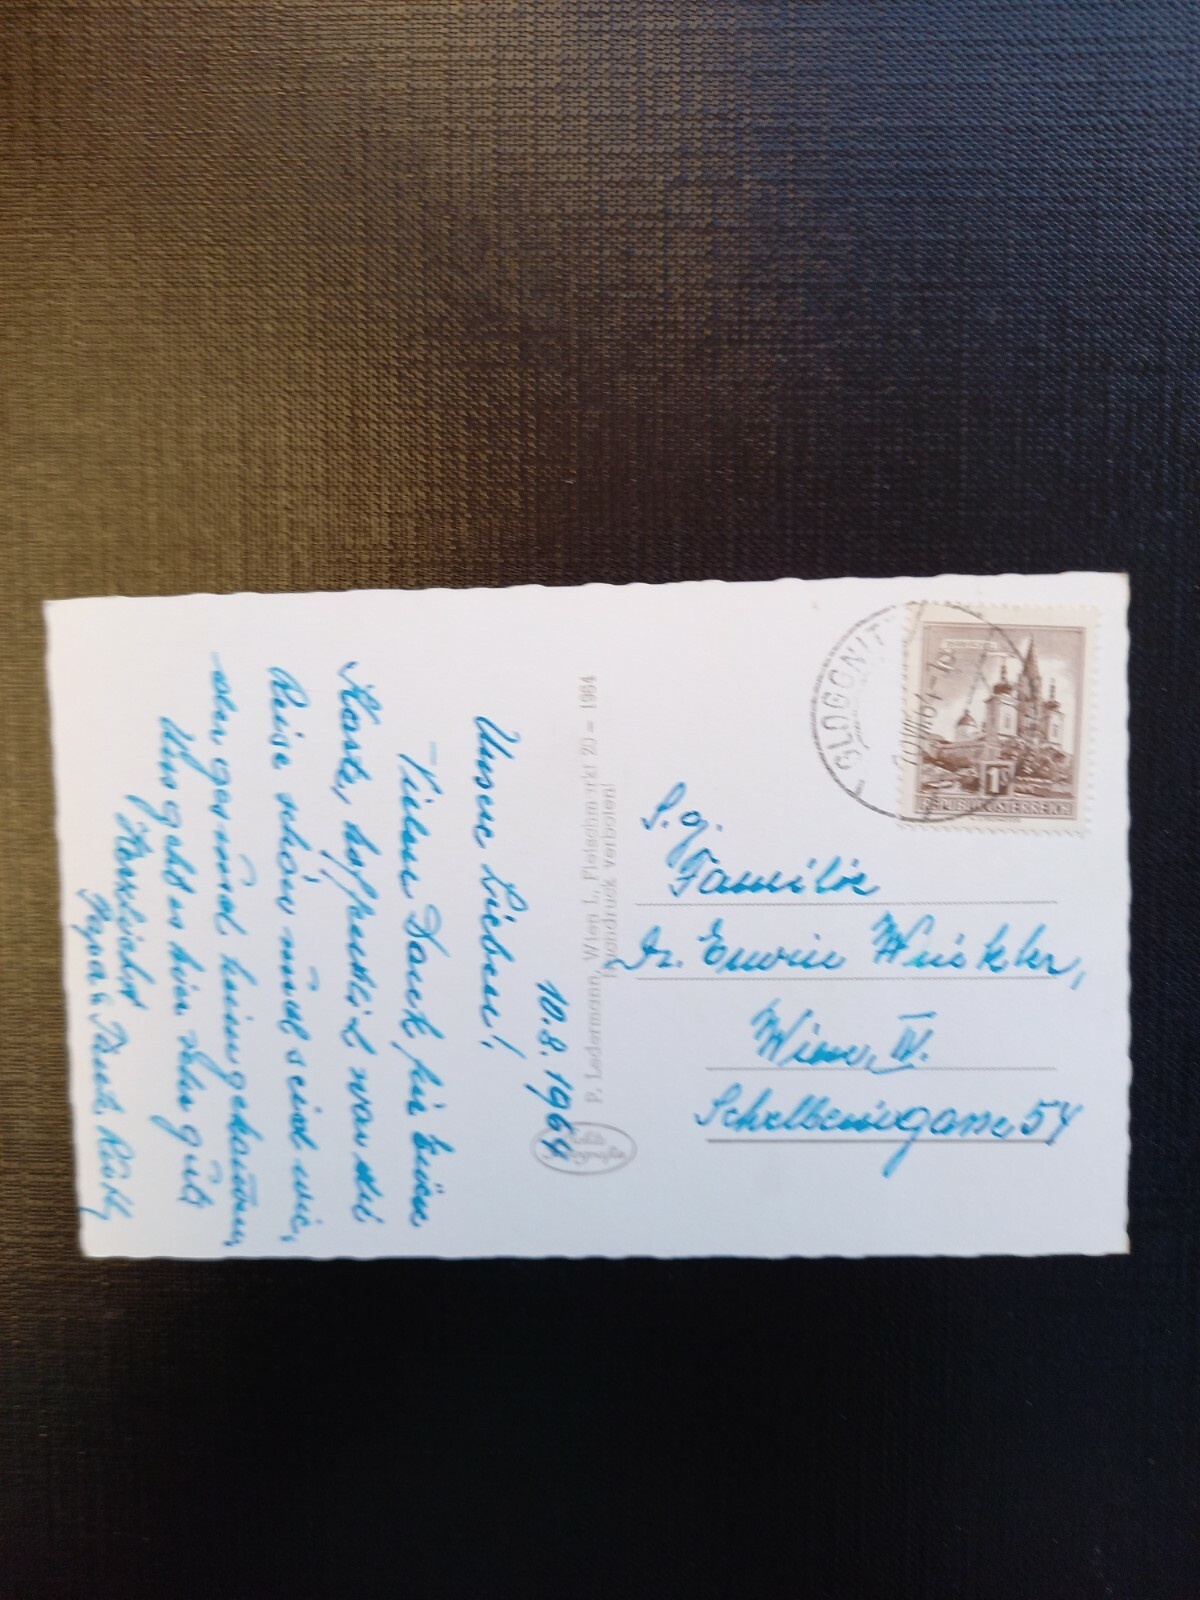 10.8.1964
Unsere Lieben!
Vielen Dank für Eure
Karte, hoffentlich war die
Reise schön und seid wie-
der gesund heimgekommen,
Uns geht es hier sehr gut
Herzlichst
Papa u.
P. Ledermann, Wien I., Fleischmarkt 20 – 1964
Nachdruck verboten!
GLOGGNITZ
10.VIII.64
1S
REPUBLIK ÖSTERREICH
S.g.
Familie
Dr. Erwin Winkler,
Wien, IV.
54